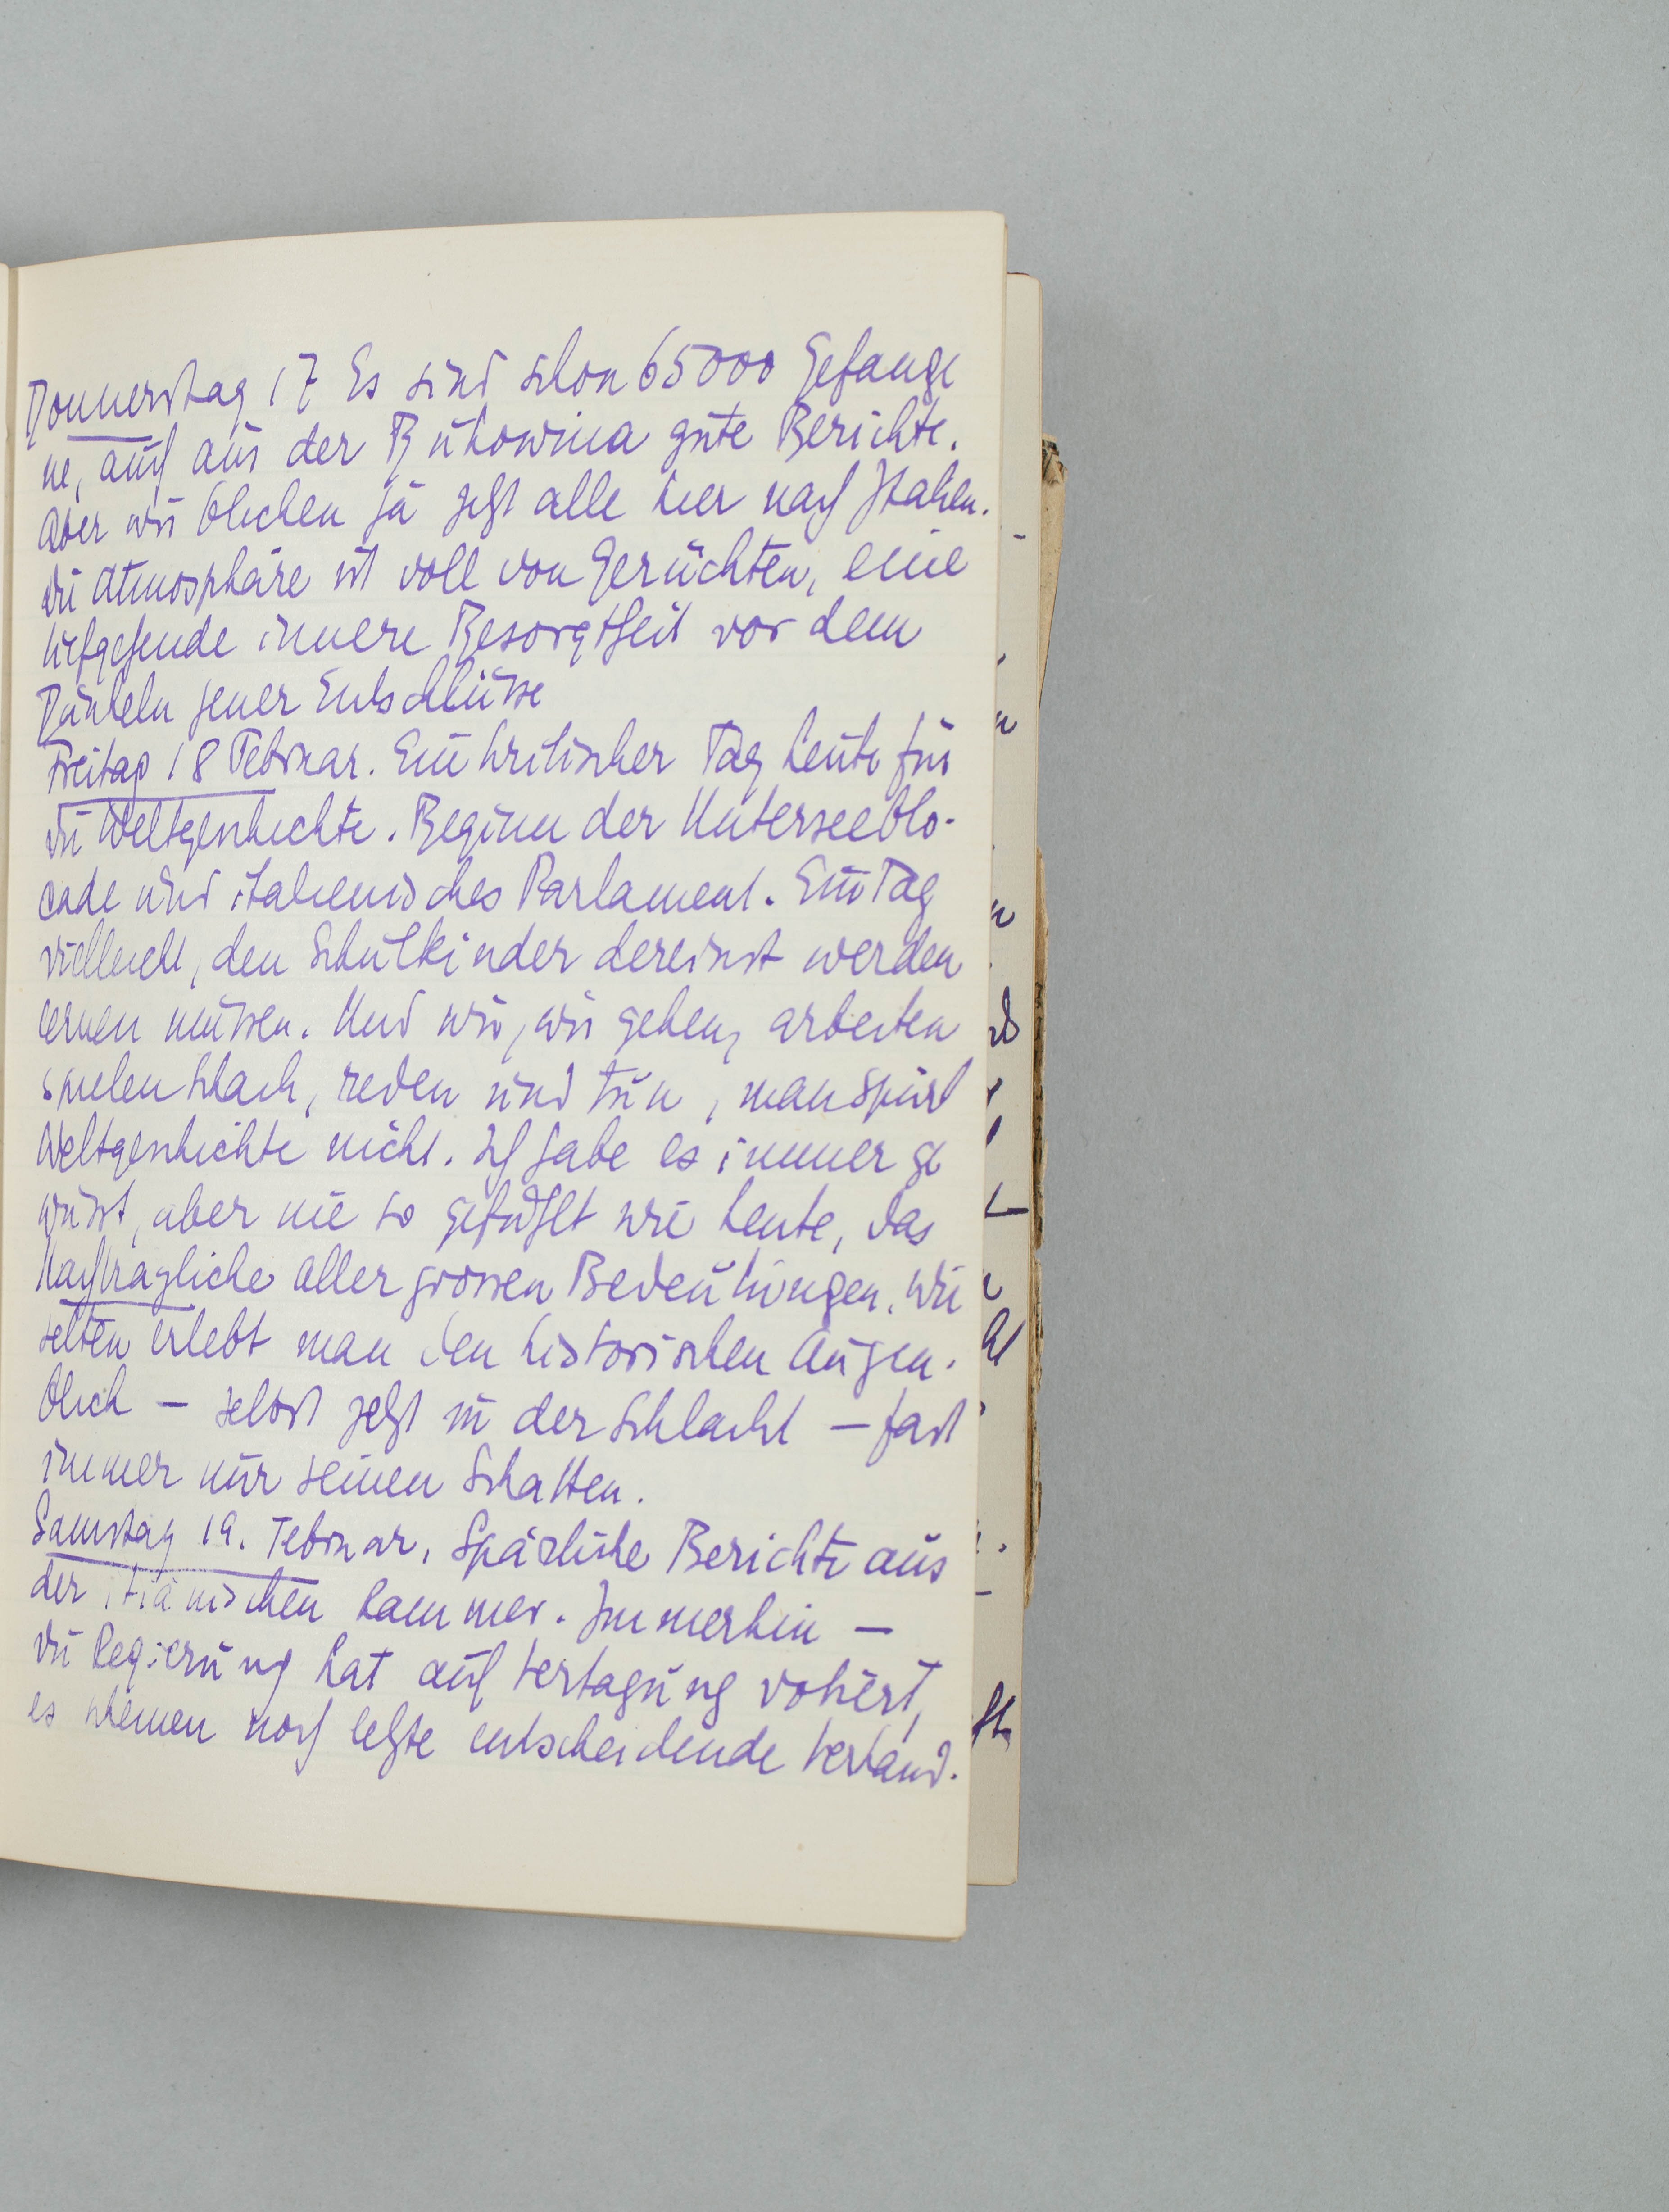 Donnerstag 17 Es sind schon 65000 Gefange
ne, auch aus der Bukowina gute Berichte.
Aber wir blicken ja jetzt alle hier nach Italien.
Die Atmosphäre ist voll von Gerüchten, eine
tiefgehende innere Besorgtheit vor dem
Dunkeln jener Entschlüsse
Freitag 18 Februar. Ein kritischer Tag heute für
die Weltgeschichte. Beginn der Unterseeblo-
cade und italienisches Parlament. Ein Tag
vielleicht, den Schulkinder dereinst werden
lernen müssen. Und wir, wir gehen, arbeiten
spielen Schach, reden und tun, man spürt
Weltgeschichte nicht. Ich habe es immer ge
wusst, aber nie so gefühlt wie heute, das
Nachtragliche aller grossen Bedeutungen. Wie
selten erlebt man den historischen Augen-
blick – selbst jetzt in der Schlacht – fast
immer nur seinen Schatten.
Samstag 19. Februar. Spärliche Berichte aus
der Kammer. Immerhin –
die Regierung hat auf Vertagung votiert,
es scheinen noch letzte entscheidende Verhand-